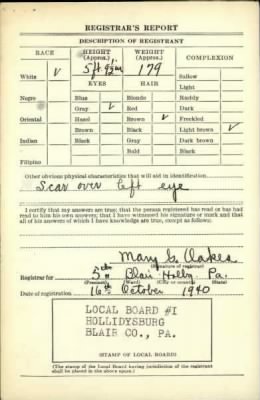 REGISTRAR'S REPORT
DESCRIPTION OF REGISTRANT
RACE HEIGHT (Approx.) WEIGHT (Approx.) COMPLEXION
White ✓ 5ft 9½in 179 Sallow
EYES HAIR Light
Negro Blue Blonde Ruddy
Gray ✓ Red Dark
Oriental Hazel Brown ✓ Freckled
Brown Black Light brown ✓
Indian Black Gray Dark brown
Bald Black
Filipino
Other obvious physical characteristics that will aid in identification
Scar over left eye
I certify that my answers are true; that the person registered has read or has had
read to him his own answers; that I have witnessed his signature or mark and that
all of his answers of which I have knowledge are true, except as follows:
Mary G. Oakes
(Signature of registrar)
Registrar for 5th Blair Pa.
(Precinct) (Ward) (City or county) (State)
Date of registration 16th October 1940
LOCAL BOARD #1
HOLLIDYSBURG
BLAIR CO., PA.
(STAMP OF LOCAL BOARD)
(The stamp of the Local Board having jurisdiction of the registrant
shall be placed in the above space.)